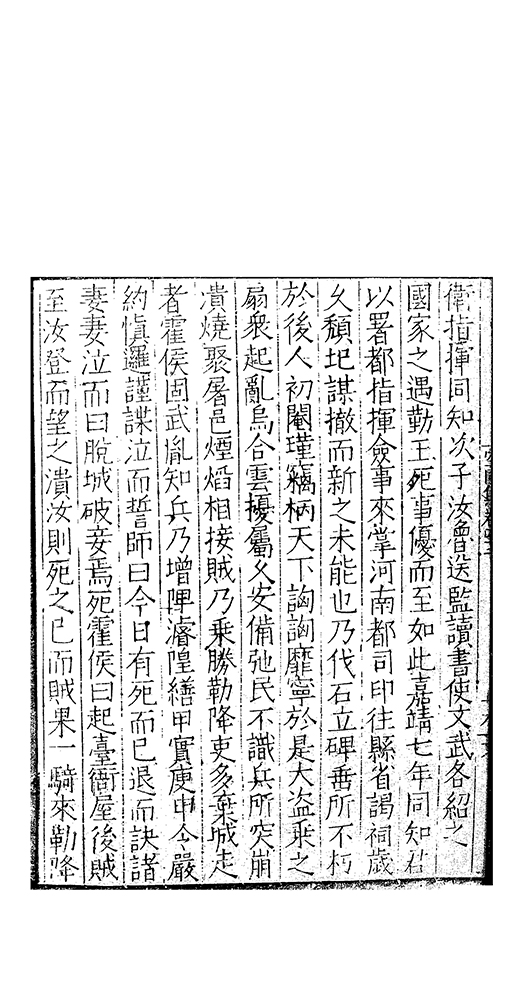 衛指揮同知次子汝魯送監讀書使文武各紹之
國家之遇勤王死事優而至如此嘉靖七年同知君
以署都指揮僉事來掌河南都司印往縣省謁祠歲
久頹圮謀撤而新之未能也乃伐石立碑垂所不朽
於後人初閹瑾竊柄天下詾詾靡寧於是大盜乘之
扇衆起亂烏合雲擾屬久安備弛民不識兵所突崩
潰燒聚屠邑煙熖相接賊乃乘勝勒降吏多棄城走
者霍侯固武胤知兵乃增陴濬隍繕甲實庾申令嚴
約慎邏謹諜泣而誓師曰今日有死而已退而訣諸
妻妻泣而曰脫城破妾焉死霍侯曰起臺衙屋後賊
至汝登而望之潰汝則死之已而賊果一騎來勒降